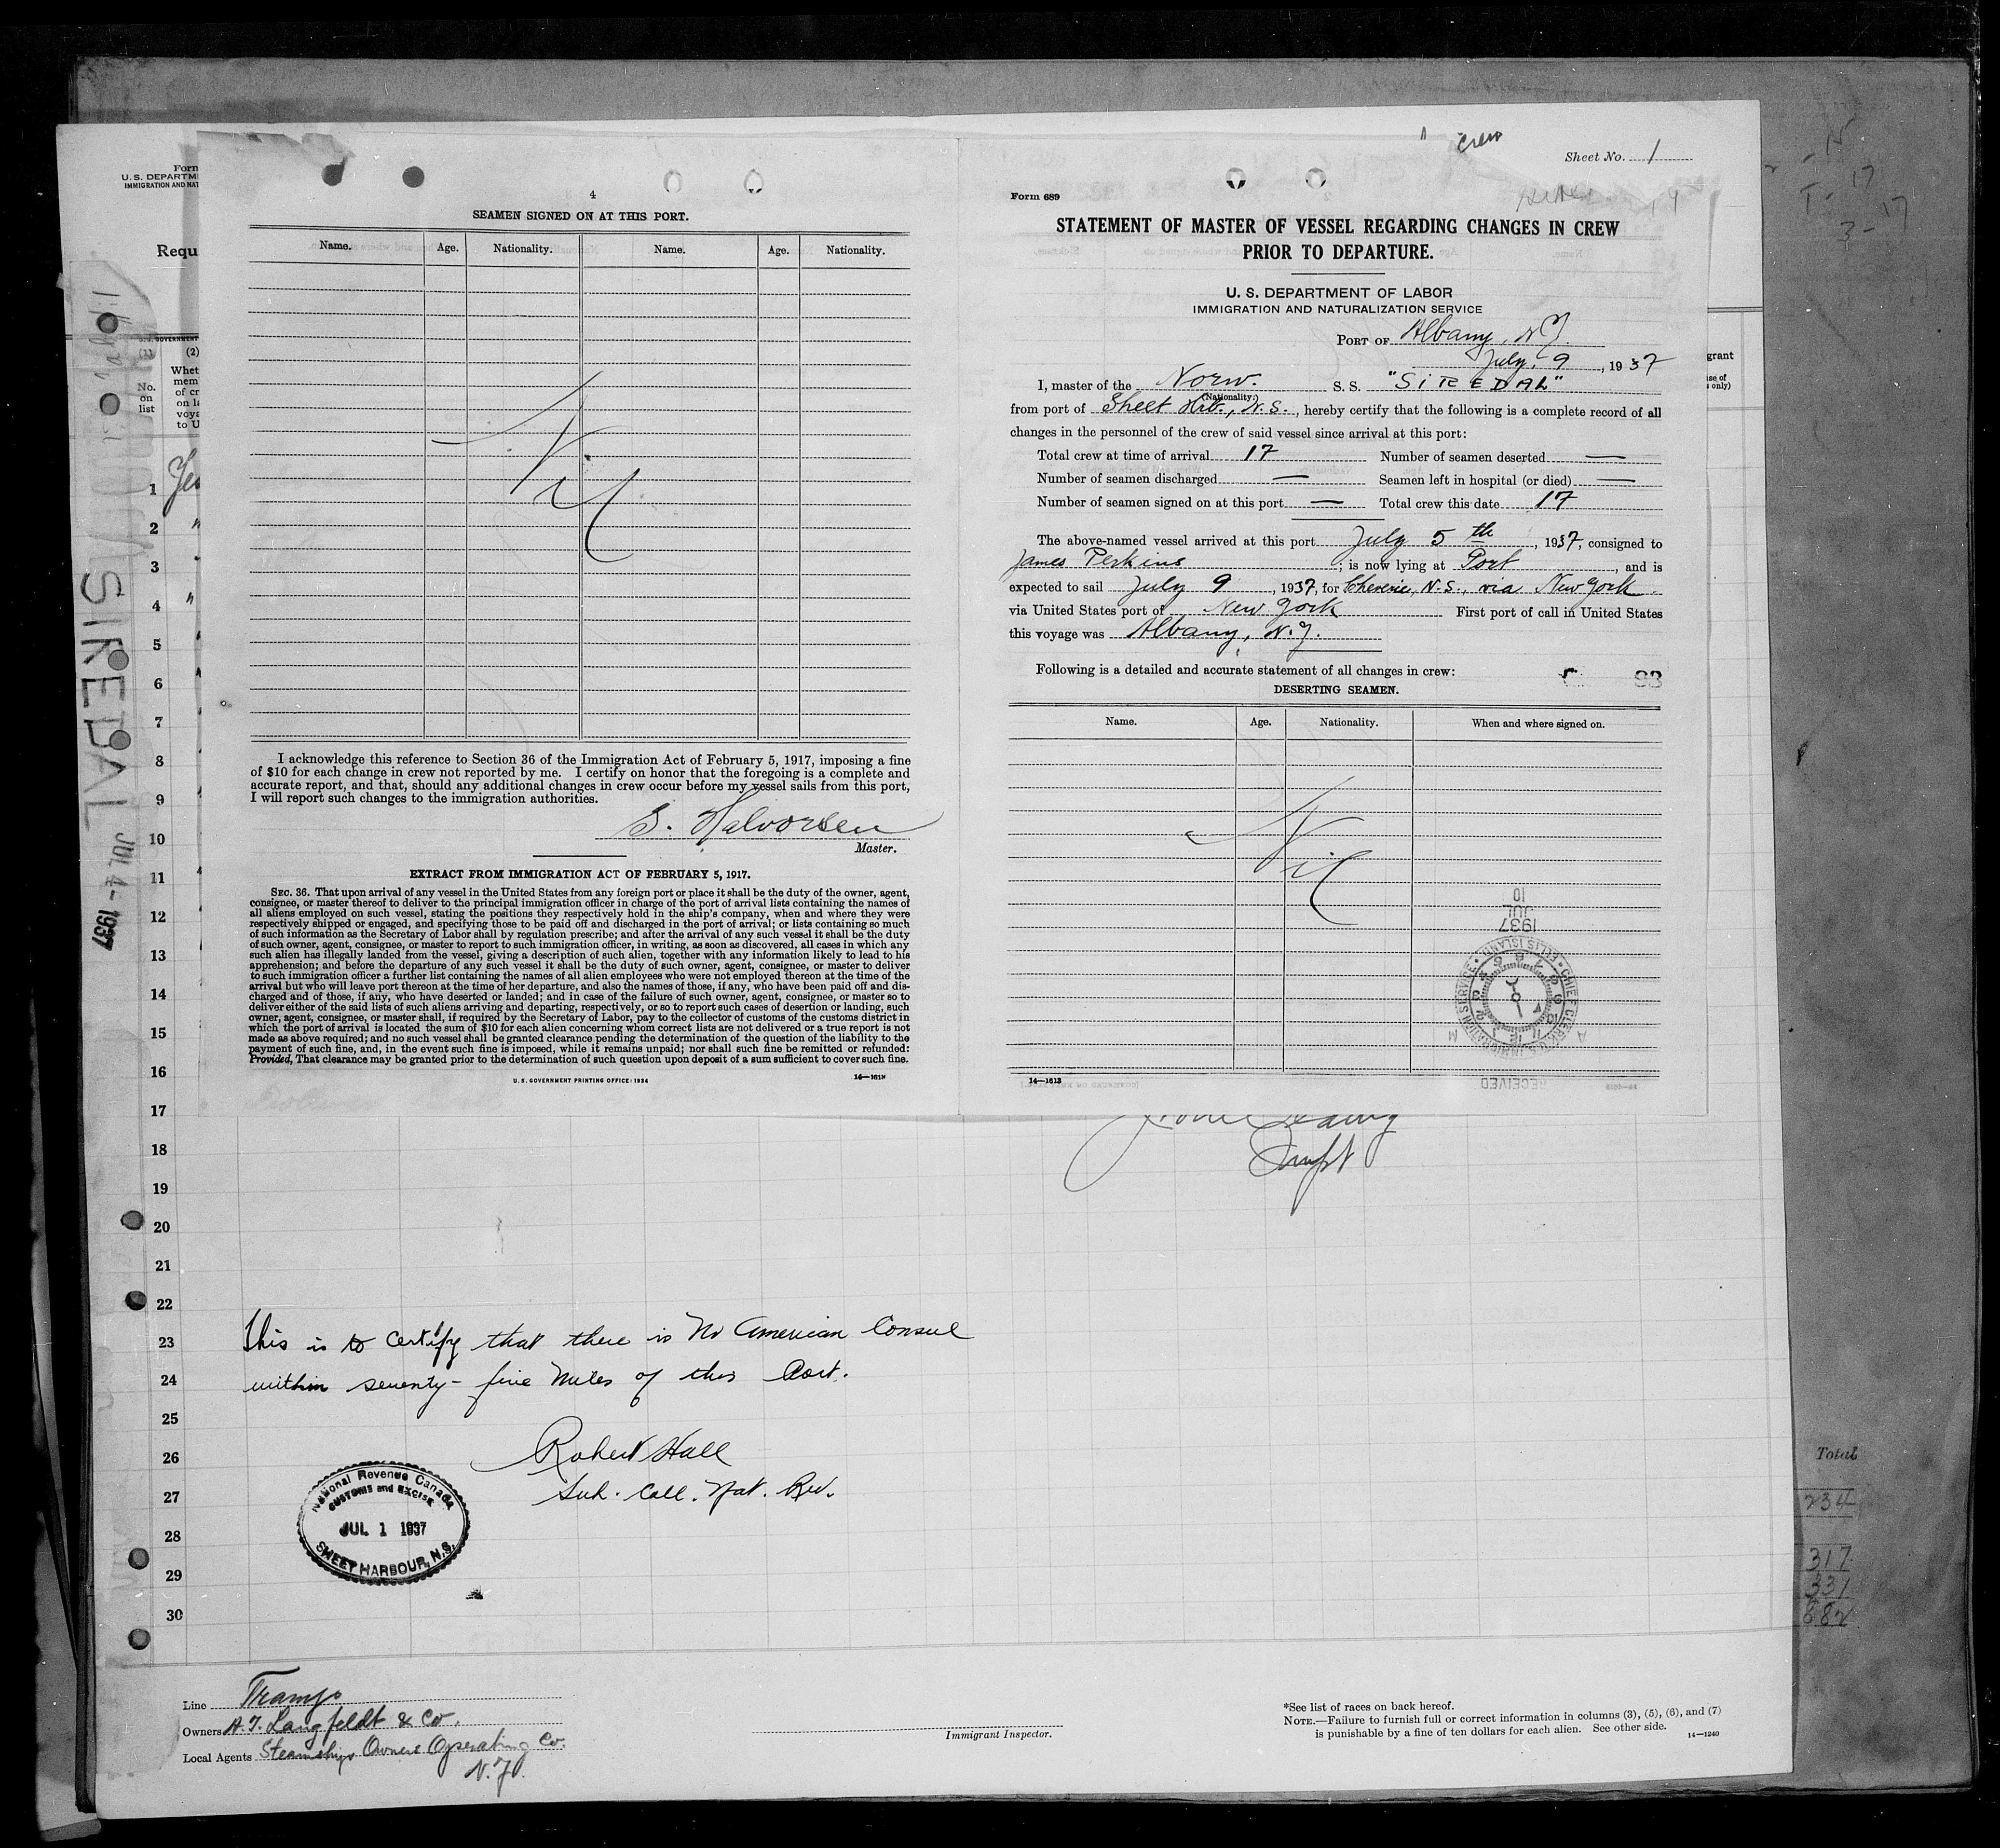 Form
U. S. DEPARTM
IMMIGRATION AND NAT
Requ
U.S. GOVERNMENT
(1)
(2)
No.
on
list
Whet
mem
of cr
on la
voya
to U
SIREDAL JUL 4- 1937
1
2
3
4
5
6
7
8
9
10
11
12
13
14
15
16
17
18
19
20
21
22
23
24
25
26
27
28
29
30
4
SEAMEN SIGNED ON AT THIS PORT.
Name. Age. Nationality. Name. Age. Nationality.
Nil
I acknowledge this reference to Section 36 of the Immigration Act of February 5, 1917, imposing a fine
of $10 for each change in crew not reported by me. I certify on honor that the foregoing is a complete and
accurate report, and that, should any additional changes in crew occur before my vessel sails from this port,
I will report such changes to the immigration authorities.
S. Halvorsen
Master.
EXTRACT FROM IMMIGRATION ACT OF FEBRUARY 5, 1917.
SEC. 36. That upon arrival of any vessel in the United States from any foreign port or place it shall be the duty of the owner, agent,
consignee, or master thereof to deliver to the principal immigration officer in charge of the port of arrival lists containing the names of
all aliens employed on such vessel, stating the positions they respectively hold in the ship's company, when and where they were
respectively shipped or engaged, and specifying those to be paid off and discharged in the port of arrival; or lists containing so much
of such information as the Secretary of Labor shall by regulation prescribe; and after the arrival of any such vessel it shall be the duty
of such owner, agent, consignee, or master to report to such immigration officer, in writing, as soon as discovered, all cases in which any
such alien has illegally landed from the vessel, giving a description of such alien, together with any information likely to lead to his
apprehension; and before the departure of any such vessel it shall be the duty of such owner, agent, consignee, or master to deliver
to such immigration officer a further list containing the names of all alien employees who were not employed thereon at the time of the
arrival but who will leave port thereon at the time of her departure, and also the names of those, if any, who have been paid off and dis-
charged and of those, if any, who have deserted or landed; and in case of the failure of such owner, agent, consignee, or master so to
deliver either of the said lists of such aliens arriving and departing, respectively, or so to report such cases of desertion or landing, such
owner, agent, consignee, or master shall, if required by the Secretary of Labor, pay to the collector of customs of the customs district in
which the port of arrival is located the sum of $10 for each alien concerning whom correct lists are not delivered or a true report is not
made as above required; and no such vessel shall be granted clearance pending the determination of the question of the liability to the
payment of such fine, and, in the event such fine is imposed, while it remains unpaid; nor shall such fine be remitted or refunded:
Provided, That clearance may be granted prior to the determination of such question upon deposit of a sum sufficient to cover such fine.
U.S. GOVERNMENT PRINTING OFFICE: 1934 14—1613
crew
Sheet No. 1
Form 689
STATEMENT OF MASTER OF VESSEL REGARDING CHANGES IN CREW
PRIOR TO DEPARTURE.
U. S. DEPARTMENT OF LABOR
IMMIGRATION AND NATURALIZATION SERVICE
PORT OF Albany, N.Y.
July, 9, 1937
I, master of the Norw. S. S. "SIREDAL"
(Nationality.)
from port of Sheet Hrb., N.S., hereby certify that the following is a complete record of all
changes in the personnel of the crew of said vessel since arrival at this port:
Total crew at time of arrival 17 Number of seamen deserted —
Number of seamen discharged — Seamen left in hospital (or died) —
Number of seamen signed on at this port — Total crew this date 17
The above-named vessel arrived at this port July 5th, 1937, consigned to
James Perkins; is now lying at Port, and is
expected to sail July 9, 1937, for Cheverie, N.S., via New York
via United States port of New York First port of call in United States
this voyage was Albany, N.Y.
Following is a detailed and accurate statement of all changes in crew:
DESERTING SEAMEN.
Name. Age. Nationality. When and where signed on.
Nil
1937
JUL
10
CHIEF CLERK U.S. IMMIGRATION SERVICE · ELLIS ISLAND
A M
RECEIVED
14—1613
grant
se of
s only)
This is to certify that there is No American Consul
within seventy-five Miles of this Port.
Robert Hall
Sub. Coll. Nat. Rev.
National Revenue Canada
CUSTOMS and EXCISE
JUL 1 1937
SHEET HARBOUR, N.S.
Total
234
317
331
882
Line Tramp
Owners A.T. Langfeldt & Co.
Local Agents Steamship Owners Operating Co.
N.Y.
Immigrant Inspector.
*See list of races on back hereof.
NOTE.—Failure to furnish full or correct information in columns (3), (5), (6), and (7)
is punishable by a fine of ten dollars for each alien. See other side.
14—1240